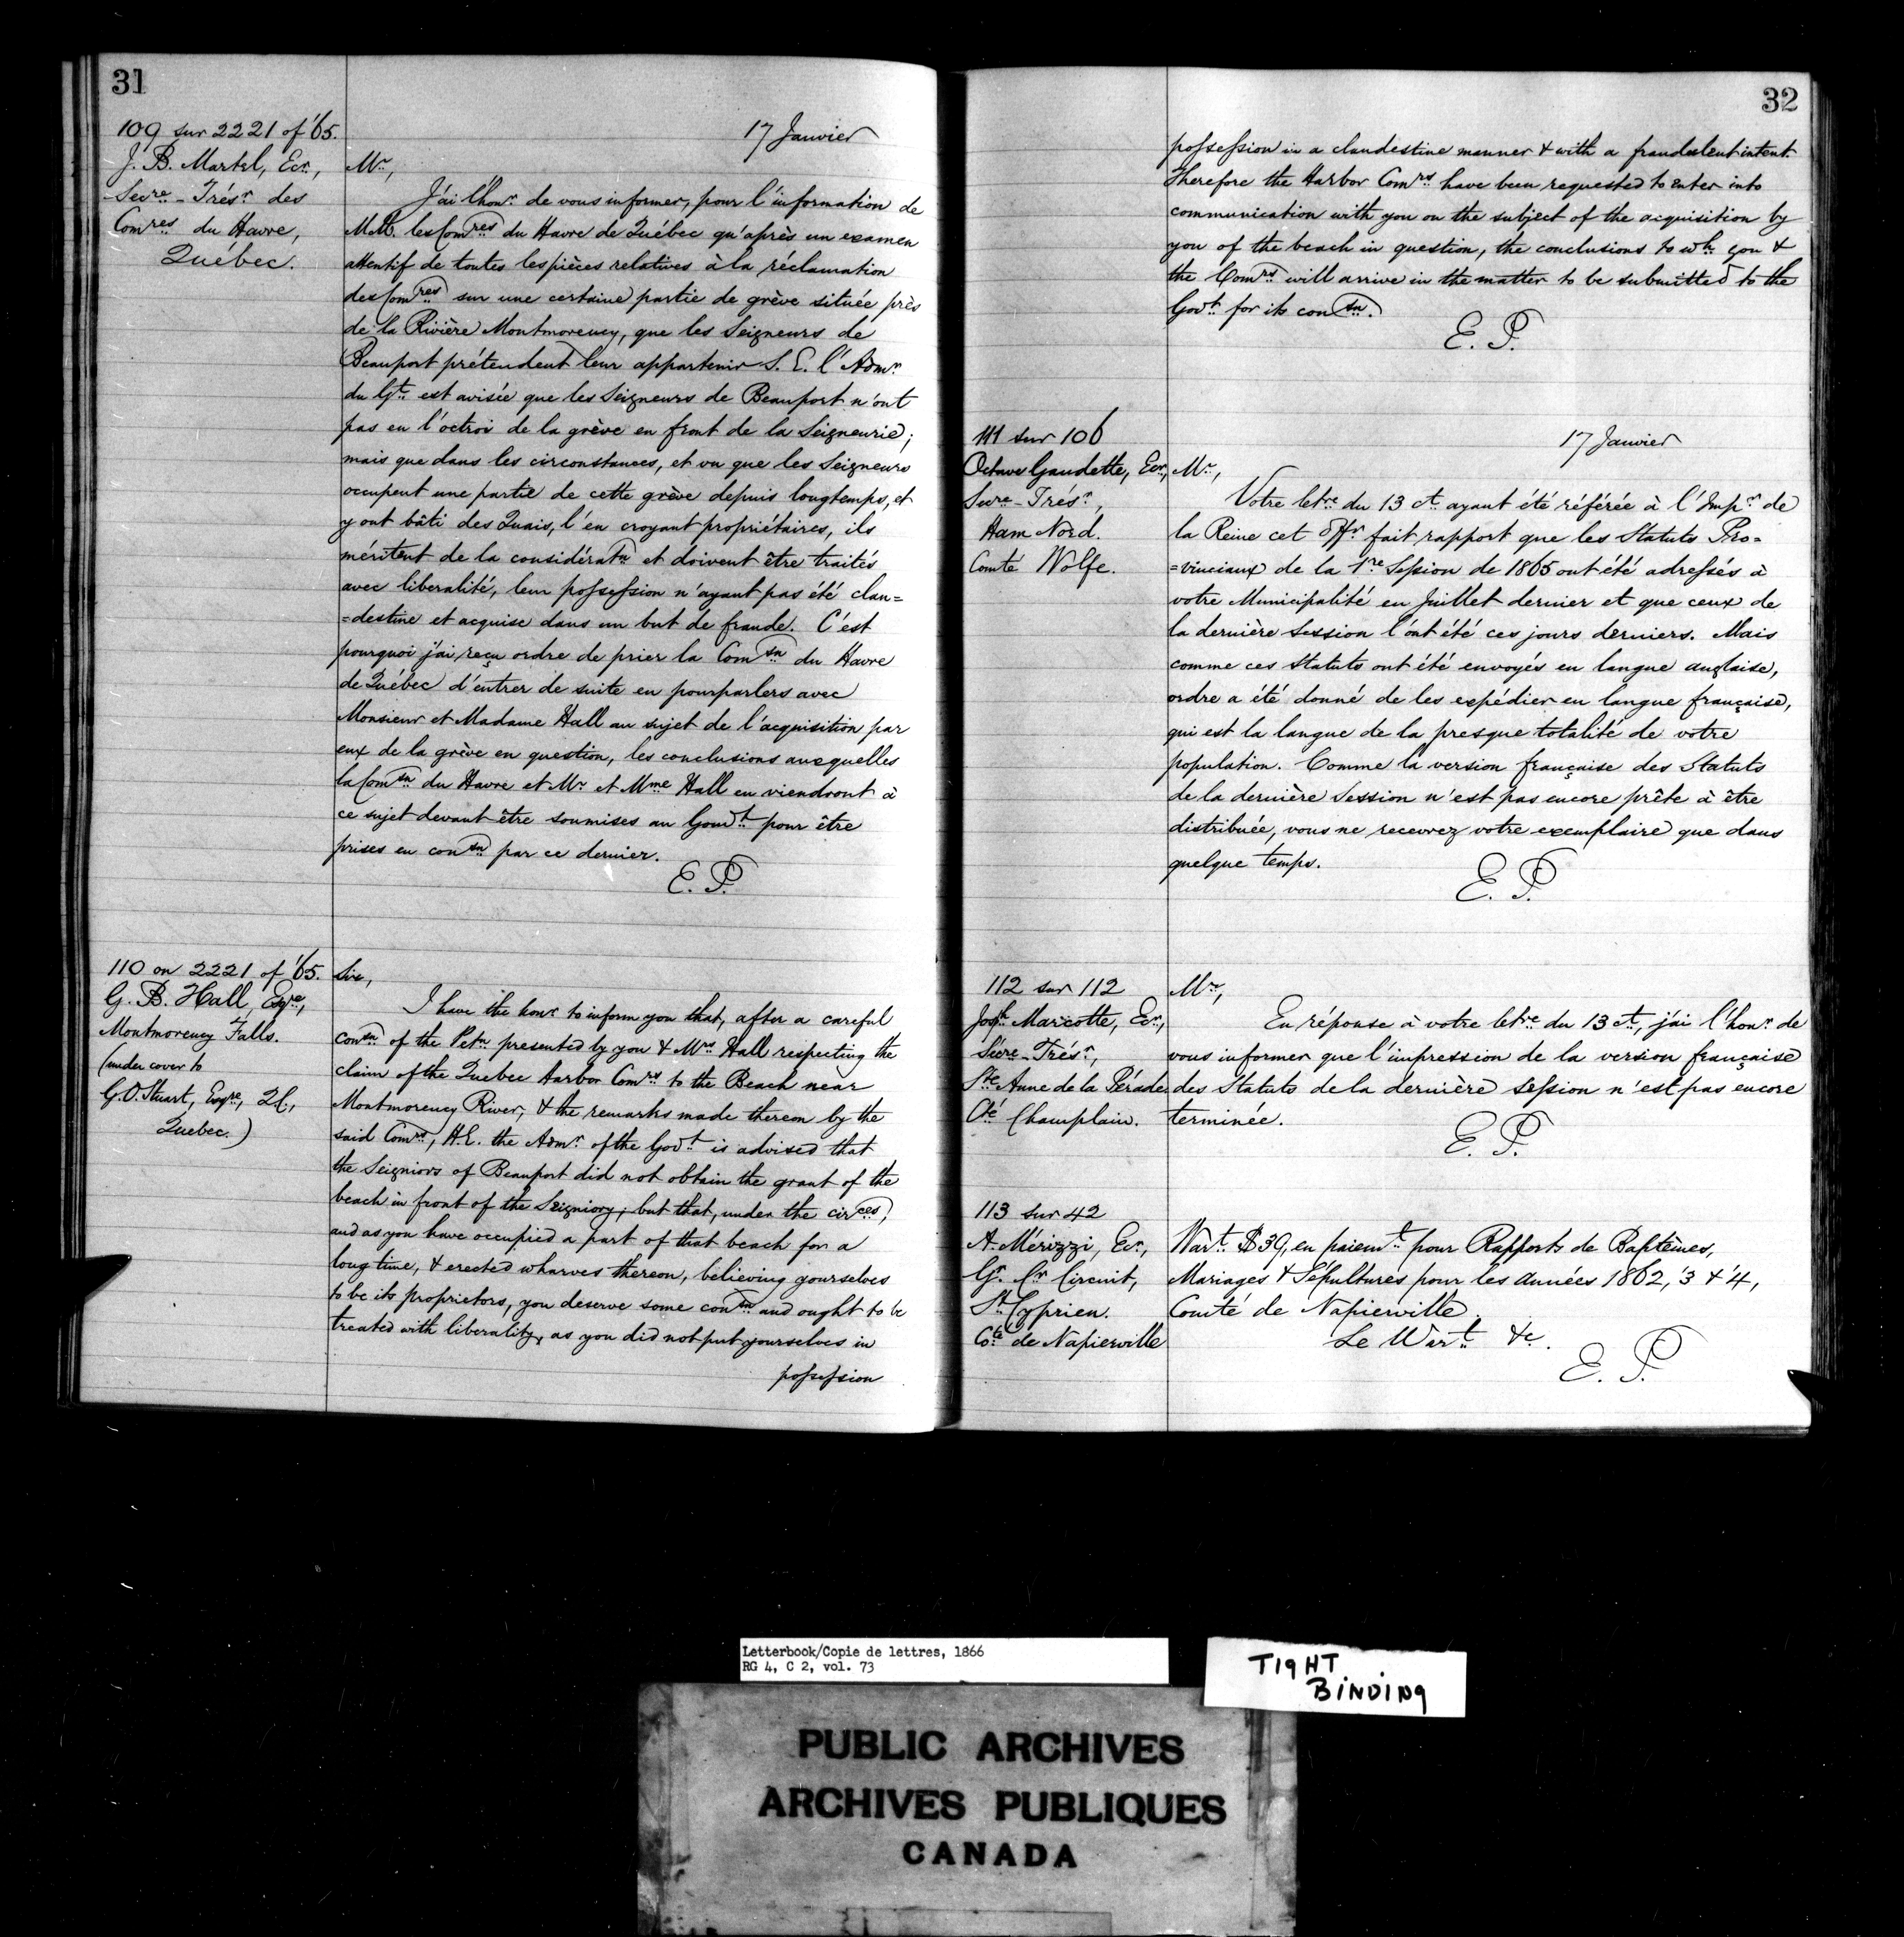 31
109 sur 2221 of '65.
J. B. Martel, Ecr.,
Secre-Trésr des
Comres du Havre,
Québec.
17 Janvier
Mr,
J'ai l'honr de vous informer, pour l'information de
MM. les Comres du Havre de Québec qu'après un examen
attentif de toutes les pièces relatives à la réclamation
des Comres sur une certaine partie de grève située près
de la Rivière Montmorency, que les Seigneurs de
Beauport prétendent leur appartenir S. E. l'Admr
du Gt est avisée que les Seigneurs de Beauport n'ont
pas eu l'octroi de la grève en front de la Seigneurie;
mais que dans les circonstances, et vu que les Seigneurs
occupent une partie de cette grève depuis longtemps, et
y ont bâti des Quais, l'en croyant propriétaires, ils
méritent de la considératn et doivent être traités
avec liberalité, leur possession n'ayant pas été clan=
=destine et acquise dans un but de fraude. C'est
pourquoi j'ai reçu ordre de prier la Comsn du Havre
de Québec d'entrer de suite en pourparlers avec
Monsieur et Madame Hall au sujet de l'acquisition par
eux de la grève en question, les conclusions auxquelles
la Comsn du Havre et Mr et Mme Hall en viendront à
ce sujet devant être soumises au Gouvt pour être
prises en consn par ce dernier.
E. P.
110 on 2221 of '65.
G. B. Hall, Esqre,
Montmorency Falls.
(under cover to
G. O. Stuart, Esqre, Q.C.,
Quebec.)
Sir,
I have the honr to inform you that, after a careful
consn of the Petn presented by you & Mrs Hall respecting the
claim of the Quebec Harbor Comrs to the Beach near
Montmorency River, & the remarks made thereon by the
said Comrs, H.E. the Admr of the Govt is advised that
the Seigniors of Beauport did not obtain the grant of the
beach in front of the Seigniory; but that, under the circes,
and as you have occupied a part of that beach for a
long time, & erected wharves thereon, believing yourselves
to be its proprietors, you deserve some consn and ought to be
treated with liberality, as you did not put yourselves in
possession
32
possession in a clandestine manner & with a fraudulent intent.
Therefore the Harbor Comrs have been requested to enter into
communication with you on the subject of the acquisition by
you of the beach in question, the conclusions to wh. you &
the Comrs will arrive in the matter to be submitted to the
Govt for its consn.
E. P.
111 sur 106
Octave Gaudette, Ecr,
Secre-Trésr,
Ham Nord.
Comté Wolfe.
17 Janvier
Mr,
Votre letre du 13 ct. ayant été référée à l'Impr de
la Reine cet offr fait rapport que les Statuts Pro=
=vinciaux de la 1re Session de 1865 ont été adressés à
votre Municipalité en Juillet dernier et que ceux de
la dernière Session l'ont été ces jours derniers. Mais
comme ces Statuts ont été envoyés en langue anglaise,
ordre a été donné de les expédier en langue française,
qui est la langue de la presque totalité de votre
population. Comme la version française des Statuts
de la dernière Session n'est pas encore prête à être
distribuée, vous ne recevrez votre exemplaire que dans
quelque temps.
E. P.
112 sur 112
Josph Marcotte, Ecr,
Sécre-Trésr,
Ste Anne de la Pérade
Cté Champlain.
Mr,
En réponse à votre letre du 13 ct., j'ai l'honr de
vous informer que l'impression de la version française
des Statuts de la dernière session n'est pas encore
terminée.
E. P.
113 sur 42
A. Mérizzi, Ecr,
Gr. Cr Circuit,
St Cyprien.
Cté de Napierville
Wart $39, en paiemt pour Rapports de Baptèmes,
Mariages & Sépultures pour les années 1862, '3 & '4,
Comté de Napierville.
Le Wart &c.
E. P.
Letterbook/Copie de lettres, 1866
RG 4, C 2, vol. 73
TIGHT
BINDING
PUBLIC ARCHIVES
ARCHIVES PUBLIQUES
CANADA